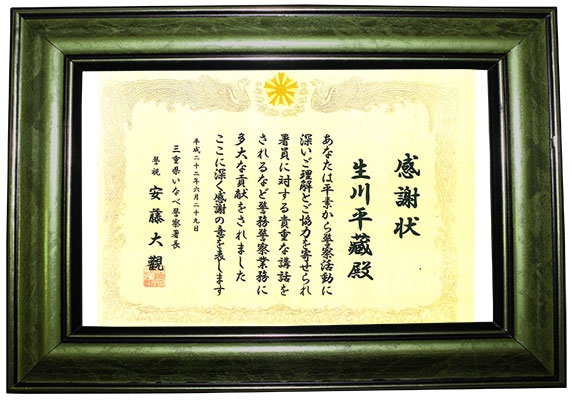 感謝状
生川平藏殿
あなたは平素から警察活動に
深いご理解とご協力を寄せられ
署員に対する貴重な講話を
されるなど警務警察業務に
多大な貢献をされました
ここに深く感謝の意を表します
平成二十二年六月二十九日
三重県いなべ警察署長
警視 安藤大觀